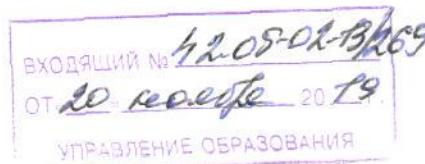 ВХОДЯЩИЙ № 42.05-02-13/269
ОТ 20 ноября 2019 г.
УПРАВЛЕНИЕ ОБРАЗОВАНИЯ